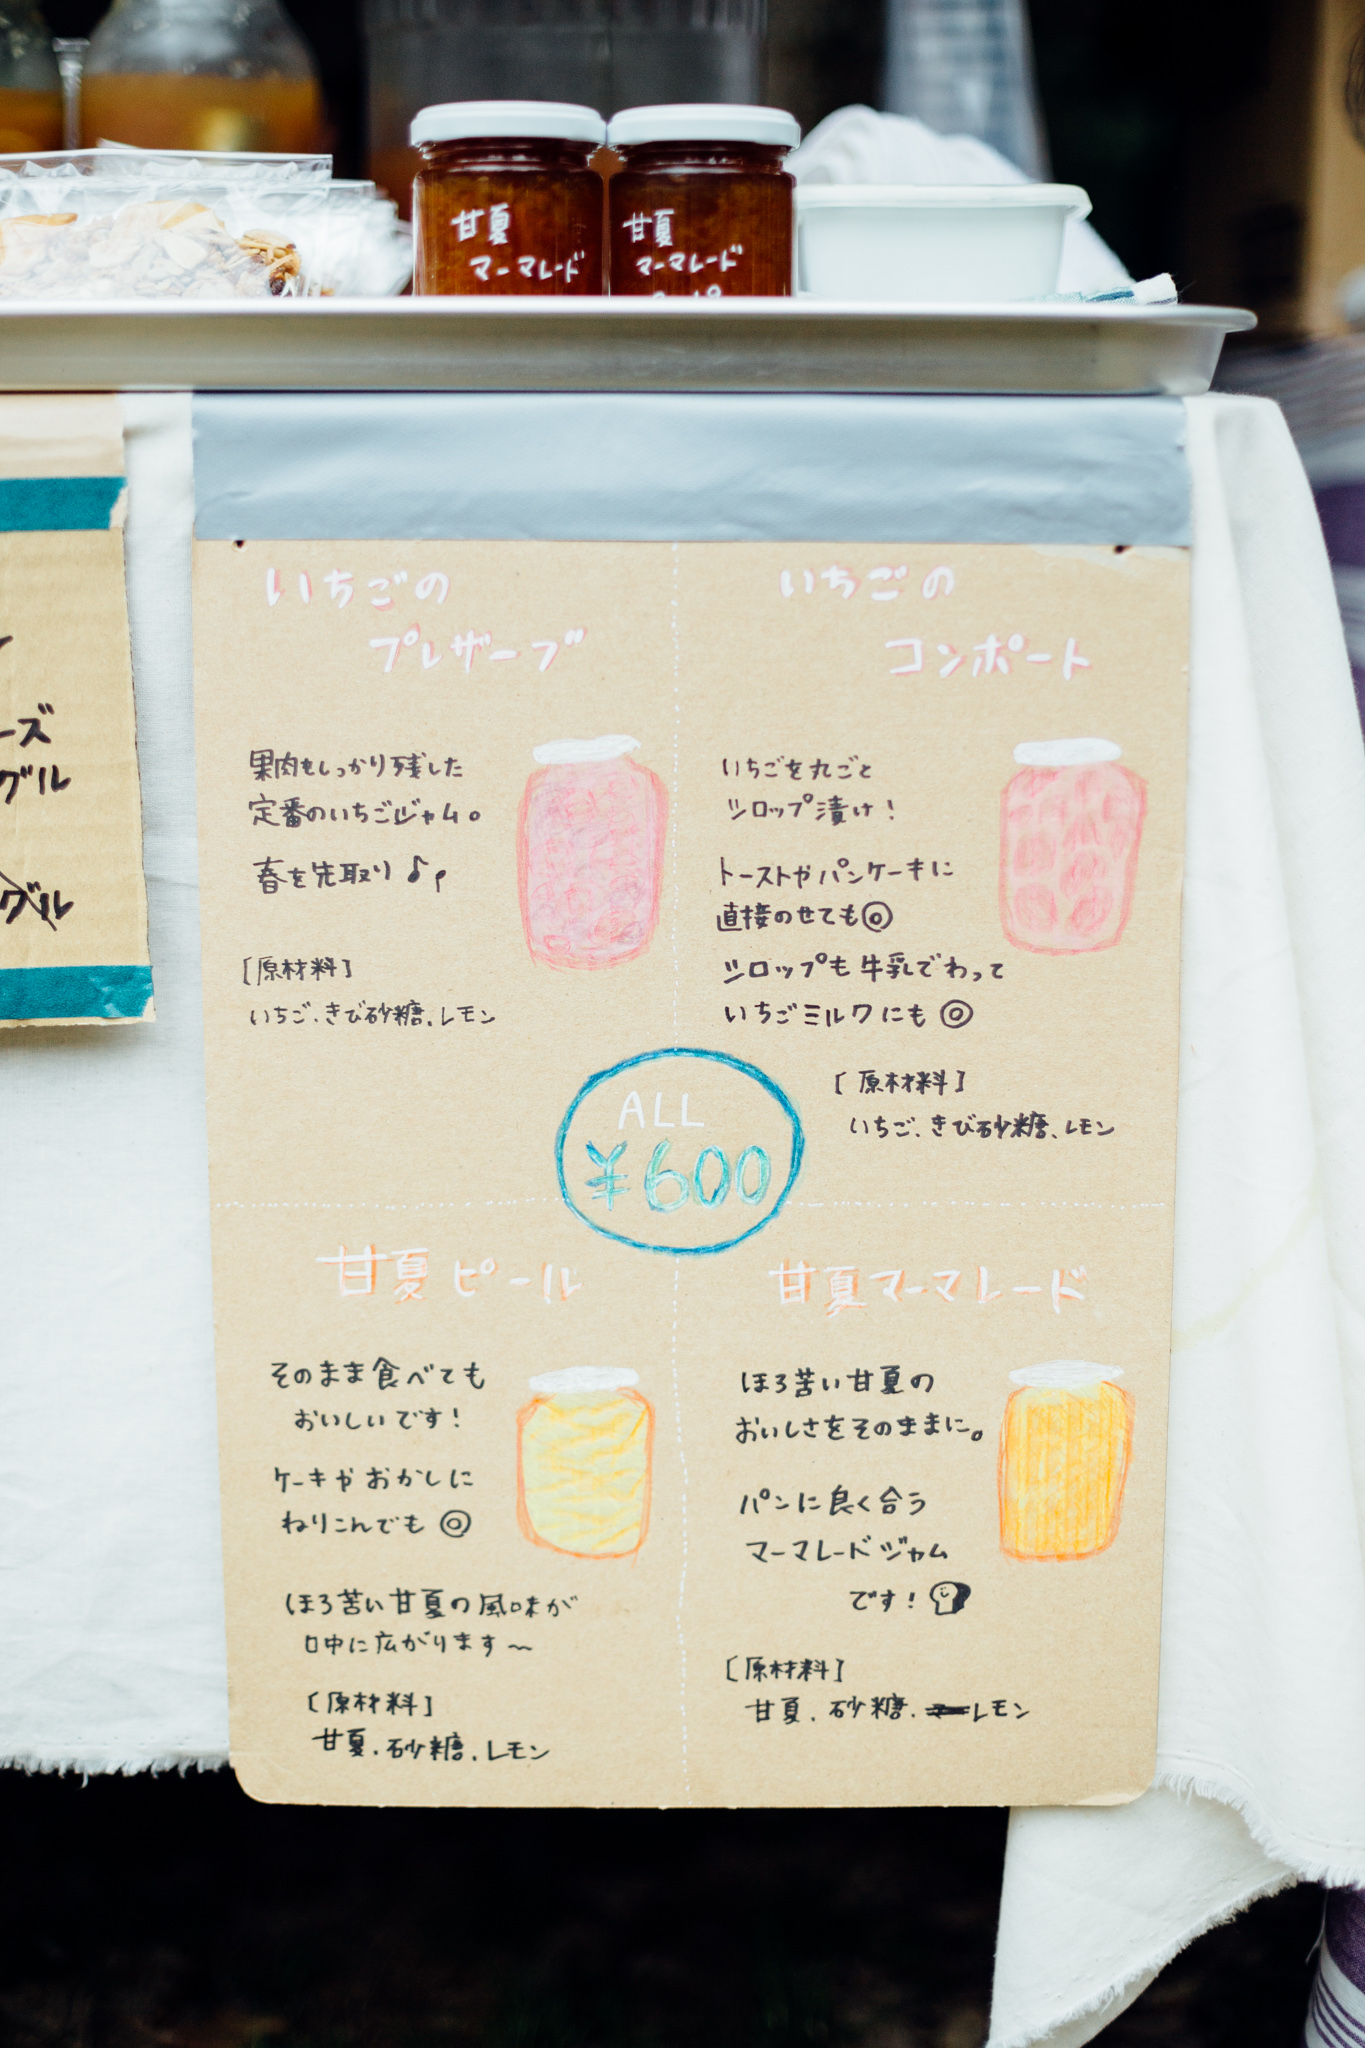 甘夏
マーマレード
甘夏
マーマレード
ーズ
グル
グル
いちごの
プレザーブ
果肉もしっかり残した
定番のいちごジャム。
春を先取り♪
[原材料]
いちご、きび砂糖、レモン
いちごの
コンポート
いちごを丸ごと
シロップ漬け!
トーストやパンケーキに
直接のせても◎
シロップも牛乳でわって
いちごミルクにも◎
[原材料]
いちご、きび砂糖、レモン
ALL
¥600
甘夏ピール
そのまま食べても
おいしいです!
ケーキやおかしに
ねりこんでも◎
ほろ苦い甘夏の風味が
口中に広がります〜
[原材料]
甘夏、砂糖、レモン
甘夏マーマレード
ほろ苦い甘夏の
おいしさをそのままに。
パンに良く合う
マーマレードジャム
です!
[原材料]
甘夏、砂糖、レモン